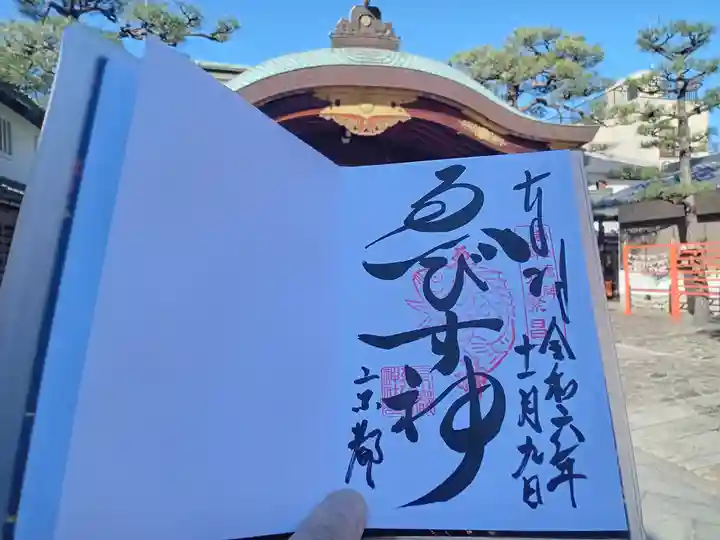 奉拝
令和六年
十一月九日
ゑびす神
京都